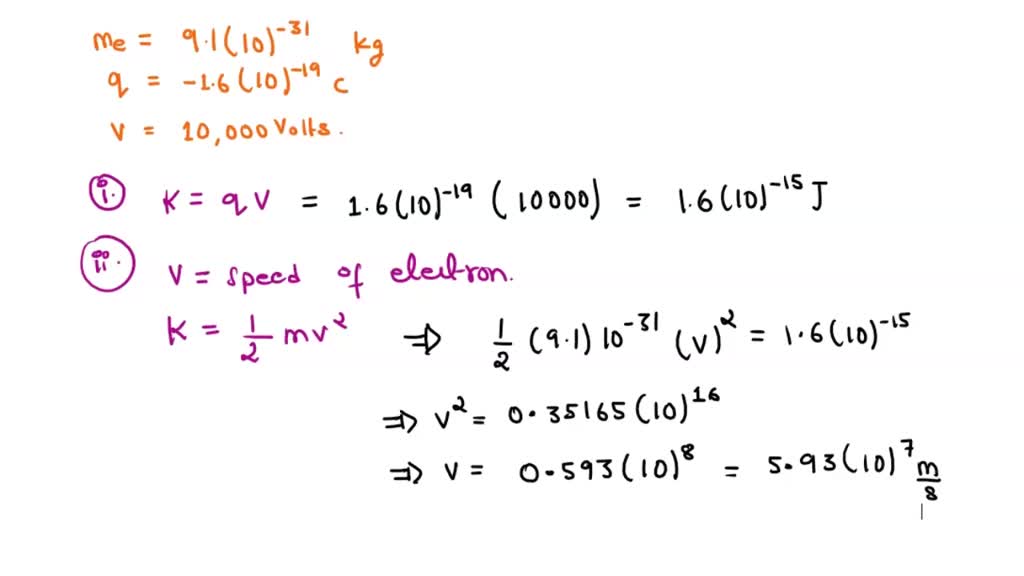 me = 9.1(10)^-31 kg
q = -1.6(10)^-19 C
V = 10,000 Volts.
i. K = qV = 1.6(10)^-19 (10000) = 1.6(10)^-15 J
ii. V = speed of electron.
K = 1/2 mv^2 ⇒ 1/2 (9.1) 10^-31 (v)^2 = 1.6(10)^-15
⇒ v^2 = 0.35165(10)^16
⇒ v = 0.593(10)^8 = 5.93(10)^7 m/s